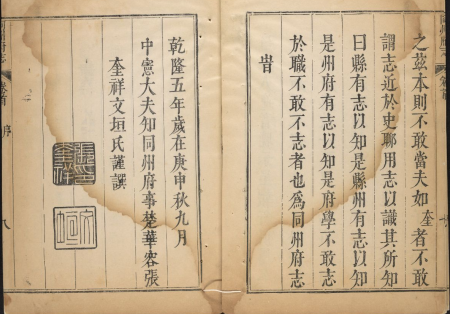 之茲本則不敢當夫如奎者不敢
謂志近於史聊用志以識其所知
曰縣有志以知是縣州有志以知
是州府有志以知是府學不敢志
於職不敢不志者也爲同州府志
旹
乾隆五年歲在庚申秋九月
中憲大夫知同州府事楚華容張
奎祥文垣氏謹譔
張奎
文垣
序